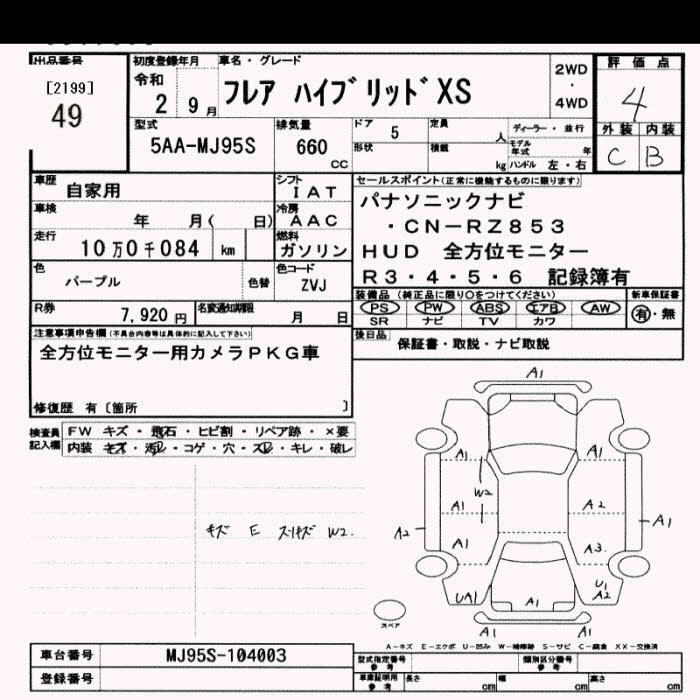 出品番号 初度登録年月 車名・グレード 評価点
[2199] 令和 2 9月 フレア ハイブリッド XS 2WD・4WD 4
49
型式 排気量 ドア 5 定員 人 ディーラー・並行 外装 内装
5AA-MJ95S 660 CC 形状 積載 kg モデル年式 年 ハンドル 左・右 C B
車歴 自家用 シフト IAT セールスポイント(正常に機能するものに限ります)
車検 年 月( 日) 冷房 AAC パナソニックナビ
・CN-RZ853
走行 10万0千084 km 燃料 ガソリン HUD 全方位モニター
色 パープル 色替 色コード ZVJ R3・4・5・6 記録簿有
装備品 (純正品に限り○をつけてください) 新車保証書
R券 7,920円 名変通知期限 月 日 PS PW ABS エアB AW 有・無
SR ナビ TV カワ
注意事項申告欄(不具合内容等は具体的に記入して下さい) 後日品 保証書・取説・ナビ取説
全方位モニター用カメラPKG車
修復歴 有〔箇所 〕
検査員記入欄 FW キズ・飛石・ヒビ割・リペア跡・×要
内装 キズ・汚レ・コゲ・穴・スレ・キレ・破レ
A1
A1 A1
W2
A1 A2
A2 A1
A1 A3
UA1 A1 U1 A2
A1 A1
キズ E スリキズ W2.
スペア
A-キズ E-エクボ U-凹み W-補修跡 S-サビ C-腐食 XX-交換済
車台番号 MJ95S-104003 型式指定番号 参考 類別区分番号 参考
登録番号 車庫証明用 参考 長さ cm 幅 cm 高さ cm